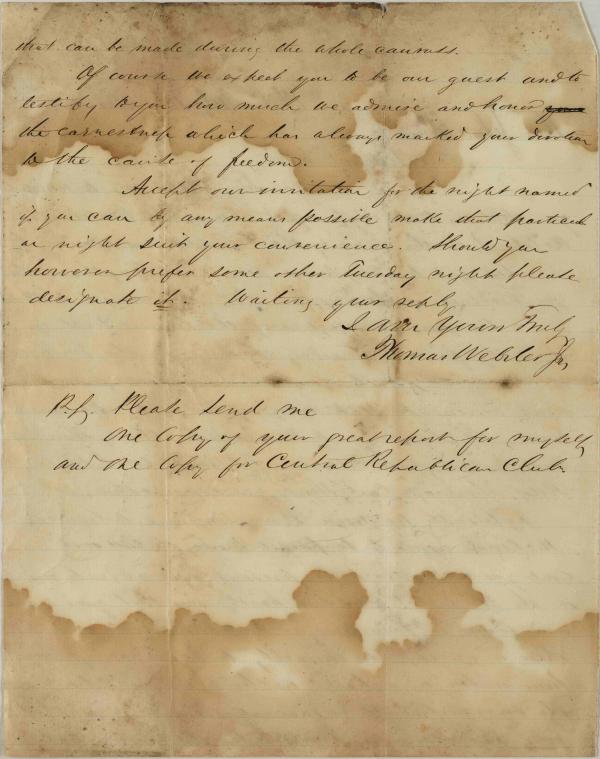 that can be made during the whole canvass.
Of course we expect you to be our guest and to
testify to you how much we admire and honor your
the earnestness which has always marked your devotion
to the cause of freedom.
Accept our invitation for the night named
if you can by any means possible make that particul
ar night suit your convenience. Should you
however prefer some other Tuesday night please
designate it. Waiting your reply
I am Yours Truly
Thomas Webster Jr,
P.S. Please send me
One Copy of your great report for myself
and One Copy for Central Republican Club.